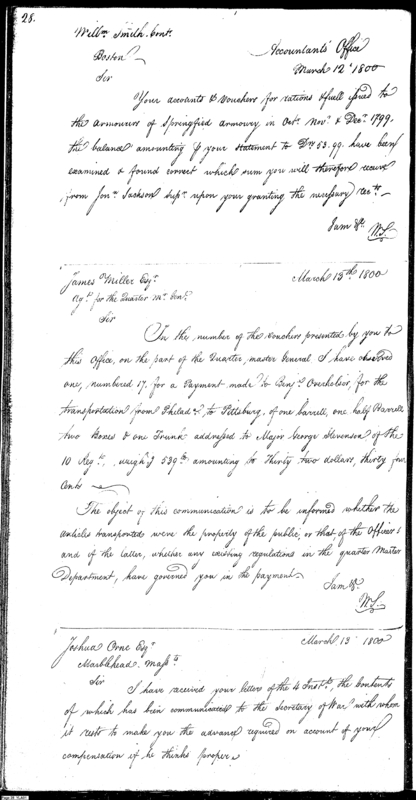 28.
Willm Smith. Cont.
Boston
Accountants Office
March 12th 1800
Sir
Your accounts & vouchers for rations & fuell issued to
the armourers of Springfield armoury in Octr. Novr. & Decr. 1799.
the balance amounting p your statement to Drs 53.99. have been
examined & found correct which sum you will therefore receive
from Jona. Jackson Supr. upon your granting the necessary recets.
I am &c.
W.S.
James Miller Esqr.
Agt. for the Quarter Mr. Genl.
March 13th. 1800
Sir
In the number of the vouchers presented by you to
this Office, on the part of the Quarter, master General I have observed
one, numbered 17. for a Payment made to Benj. Overholser, for the
transportation from Philada. to Pittsburg, of one barrell, one half Barrell
two Boxes & one Trunk addressed to Major George Stevenson of the
10 Regt., weighg 539 lb amounting to Thirty two dollars, thirty four
Cents
The object of this communication is to be informed whether the
articles transported were the property of the public, or that of the Officer;
and if the latter, whether any existing regulations in the quarter Master
Department, have governed you in the payment.
I am &c.
W.S.
Joshua Orne Esqr.
Marblehead. Massts
March 13 1800
Sir
I have received your letter of the 4 Instt., the contents
of which has been communicated to the Secretary of War with whom
it rests to make you the advance required on account of your
compensation if he thinks proper.